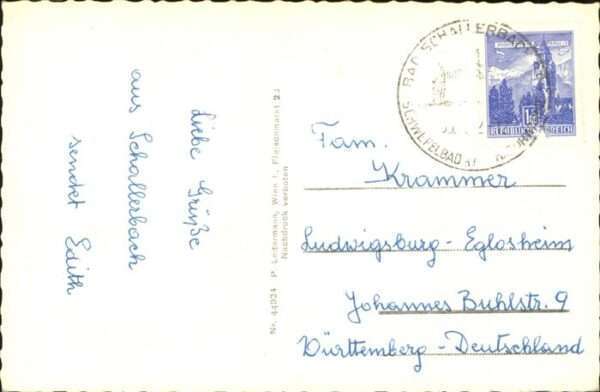 Liebe Grüße
aus Schallerbach
sendet Edith
Nr. 44924 P. Ledermann, Wien I., Fleischmarkt 23
Nachdruck verboten
BAD SCHALLERBACH
SCHWEFELBAD
REPUBLIK ÖSTERREICH
Fam.
Krammer
Ludwigsburg-Eglosheim
Johannes Buhlstr. 9
Württemberg-Deutschland